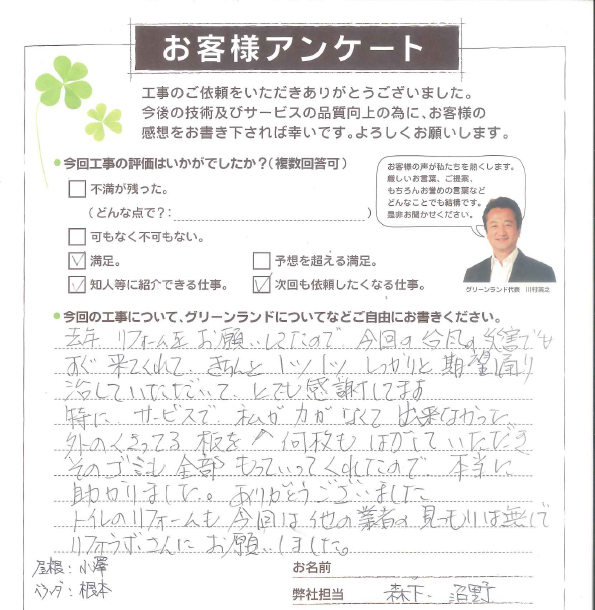 お客様アンケート
工事のご依頼をいただきありがとうございました。
今後の技術及びサービスの品質向上の為に、お客様の
感想をお書き下されば幸いです。よろしくお願いします。
今回工事の評価はいかがでしたか？（複数回答可）
不満が残った。
（どんな点で？：）
可もなく不可もない。
満足。
予想を超える満足。
知人等に紹介できる仕事。
次回も依頼したくなる仕事。
お客様の声が私たちを熱くします。
厳しいお言葉、ご提案、
もちろんお誉めの言葉など
どんなことでも結構です。
是非お聞かせください。
グリーンランド代表
今回の工事について、グリーンランドについてなどご自由にお書きください。
去年、リフォームをお願いしてたので、今回の台風の災害でも
すぐ来てくれて、きちんと1ツ1ツしっかりと期望通り
治していただいて、とても感謝してます
特に サービスで 私が力がなくて 出来なかった、
外のくさってる 板を 何枚も はがして いただき
そのゴミも 全部 もっていってくれたので、本当に
助かりました。ありがとうございました
トイレのリフォームも 今回は他の業者の見つもりは無しで
リフォうさんに お願いしました。
屋根：小澤
ベランダ：根本
お名前
弊社担当 森下、沼野